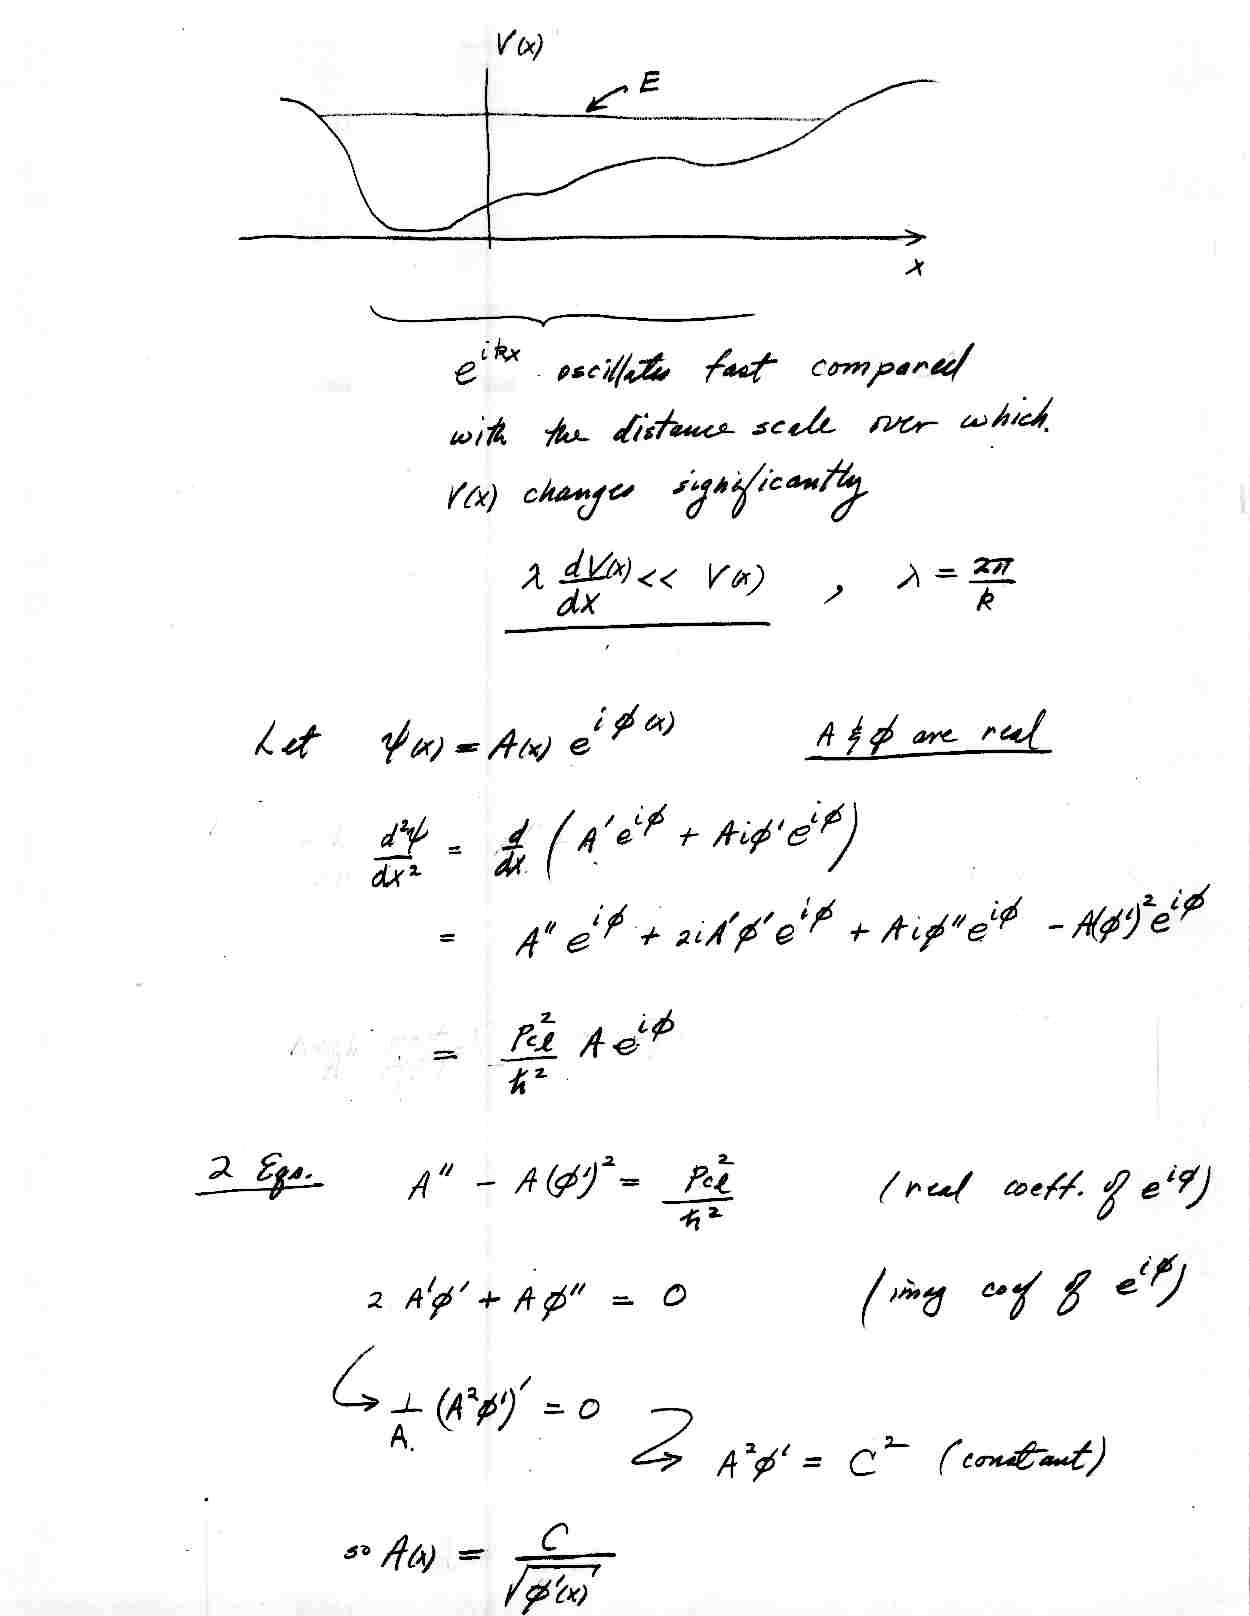 V(x)
E
x
e^{ikx} oscillates fast compared
with the distance scale over which.
V(x) changes significantly
λ dV(x)/dx << V(x) , λ = 2π/k
Let ψ(x) = A(x) e^{iφ(x)} A & φ are real
d²ψ/dx² = d/dx (A′e^{iφ} + Aiφ′e^{iφ})
= A″e^{iφ} + 2iA′φ′e^{iφ} + Aiφ″e^{iφ} - A(φ′)²e^{iφ}
= Pcl²/ħ² A e^{iφ}
2 Eqs. A″ - A(φ′)² = Pcl²/ħ² (real coeff. of e^{iφ})
2 A′φ′ + Aφ″ = 0 (imag coef of e^{iφ})
1/A. (A²φ′)′ = 0
A²φ′ = C² (constant)
so A(x) = C/√φ′(x)